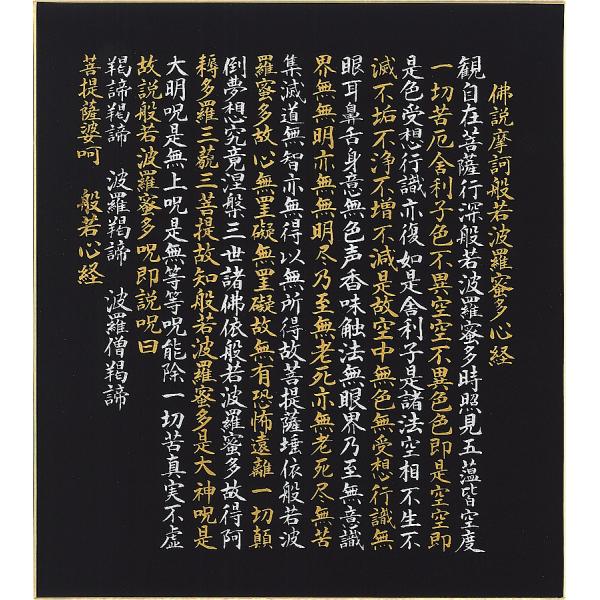 佛説摩訶般若波羅蜜多心経
観自在菩薩行深般若波羅蜜多時照見五蘊皆空度
一切苦厄舍利子色不異空空不異色色即是空空即
是色受想行識亦復如是舍利子是諸法空相不生不
滅不垢不浄不増不減是故空中無色無受想行識無
眼耳鼻舌身意無色声香味触法無眼界乃至無意識
界無無明亦無無明尽乃至無老死亦無老死尽無苦
集滅道無智亦無得以無所得故菩提薩埵依般若波
羅蜜多故心無罣礙無罣礙故無有恐怖遠離一切顛
倒夢想究竟涅槃三世諸佛依般若波羅蜜多故得阿
耨多羅三藐三菩提故知般若波羅蜜多是大神呪是
大明呪是無上呪是無等等呪能除一切苦真実不虚
故説般若波羅蜜多呪即説呪曰
羯諦羯諦　波羅羯諦　波羅僧羯諦
菩提薩婆呵　般若心経